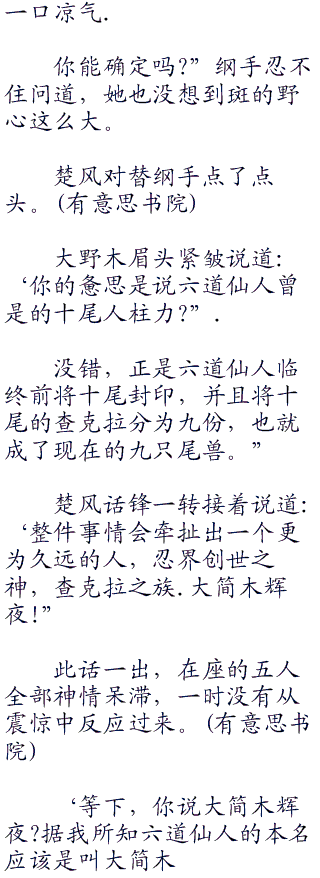 一口凉气.
你能确定吗?”纲手忍不
住问道，她也没想到斑的野
心这么大。
楚风对替纲手点了点
头。(有意思书院)
大野木眉头紧皱说道:
‘你的惫思是说六道仙人曾
是的十尾人柱力?”.
没错，正是六道仙人临
终前将十尾封印，并且将十
尾的查克拉分为九份，也就
成了现在的九只尾兽。”
楚风话锋一转接着说道:
‘整件事情会牵扯出一个更
为久远的人，忍界创世之
神，查克拉之族.大简木辉
夜!”
此话一出，在座的五人
全部神情呆滞，一时没有从
震惊中反应过来。(有意思书
院)
‘等下，你说大简木辉
夜?据我所知六道仙人的本名
应该是叫大简木